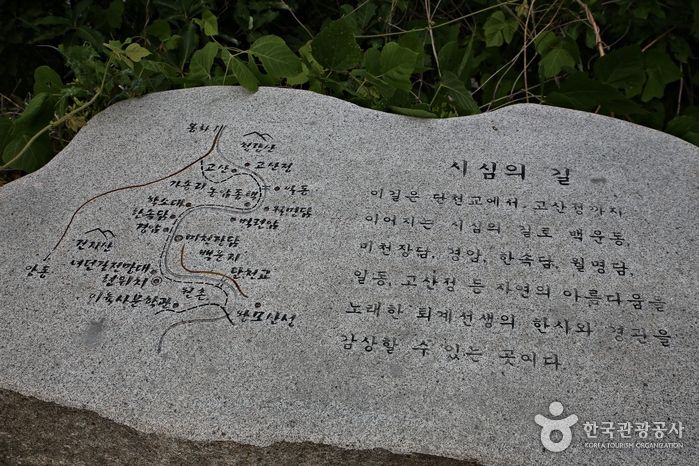 봉화
건지산
고산
고산정
가송리
농암종택
벽력암
월명담
학소대
한속담
경암
미천장담
백운지
단천교
건지산
녀던길전망대
원위치
이육사문학관
원촌
왕모산성
안동
시심의 길
이길은 단천교에서 고산정까지
이어지는 시심의 길로 백운동,
미천장담, 경암, 한속담, 월명담,
일동, 고산정 등 자연의 아름다움을
노래한 퇴계선생의 한시와 경관을
감상할 수 있는 곳이다.
한국관광공사
KOREA TOURISM ORGANIZATION